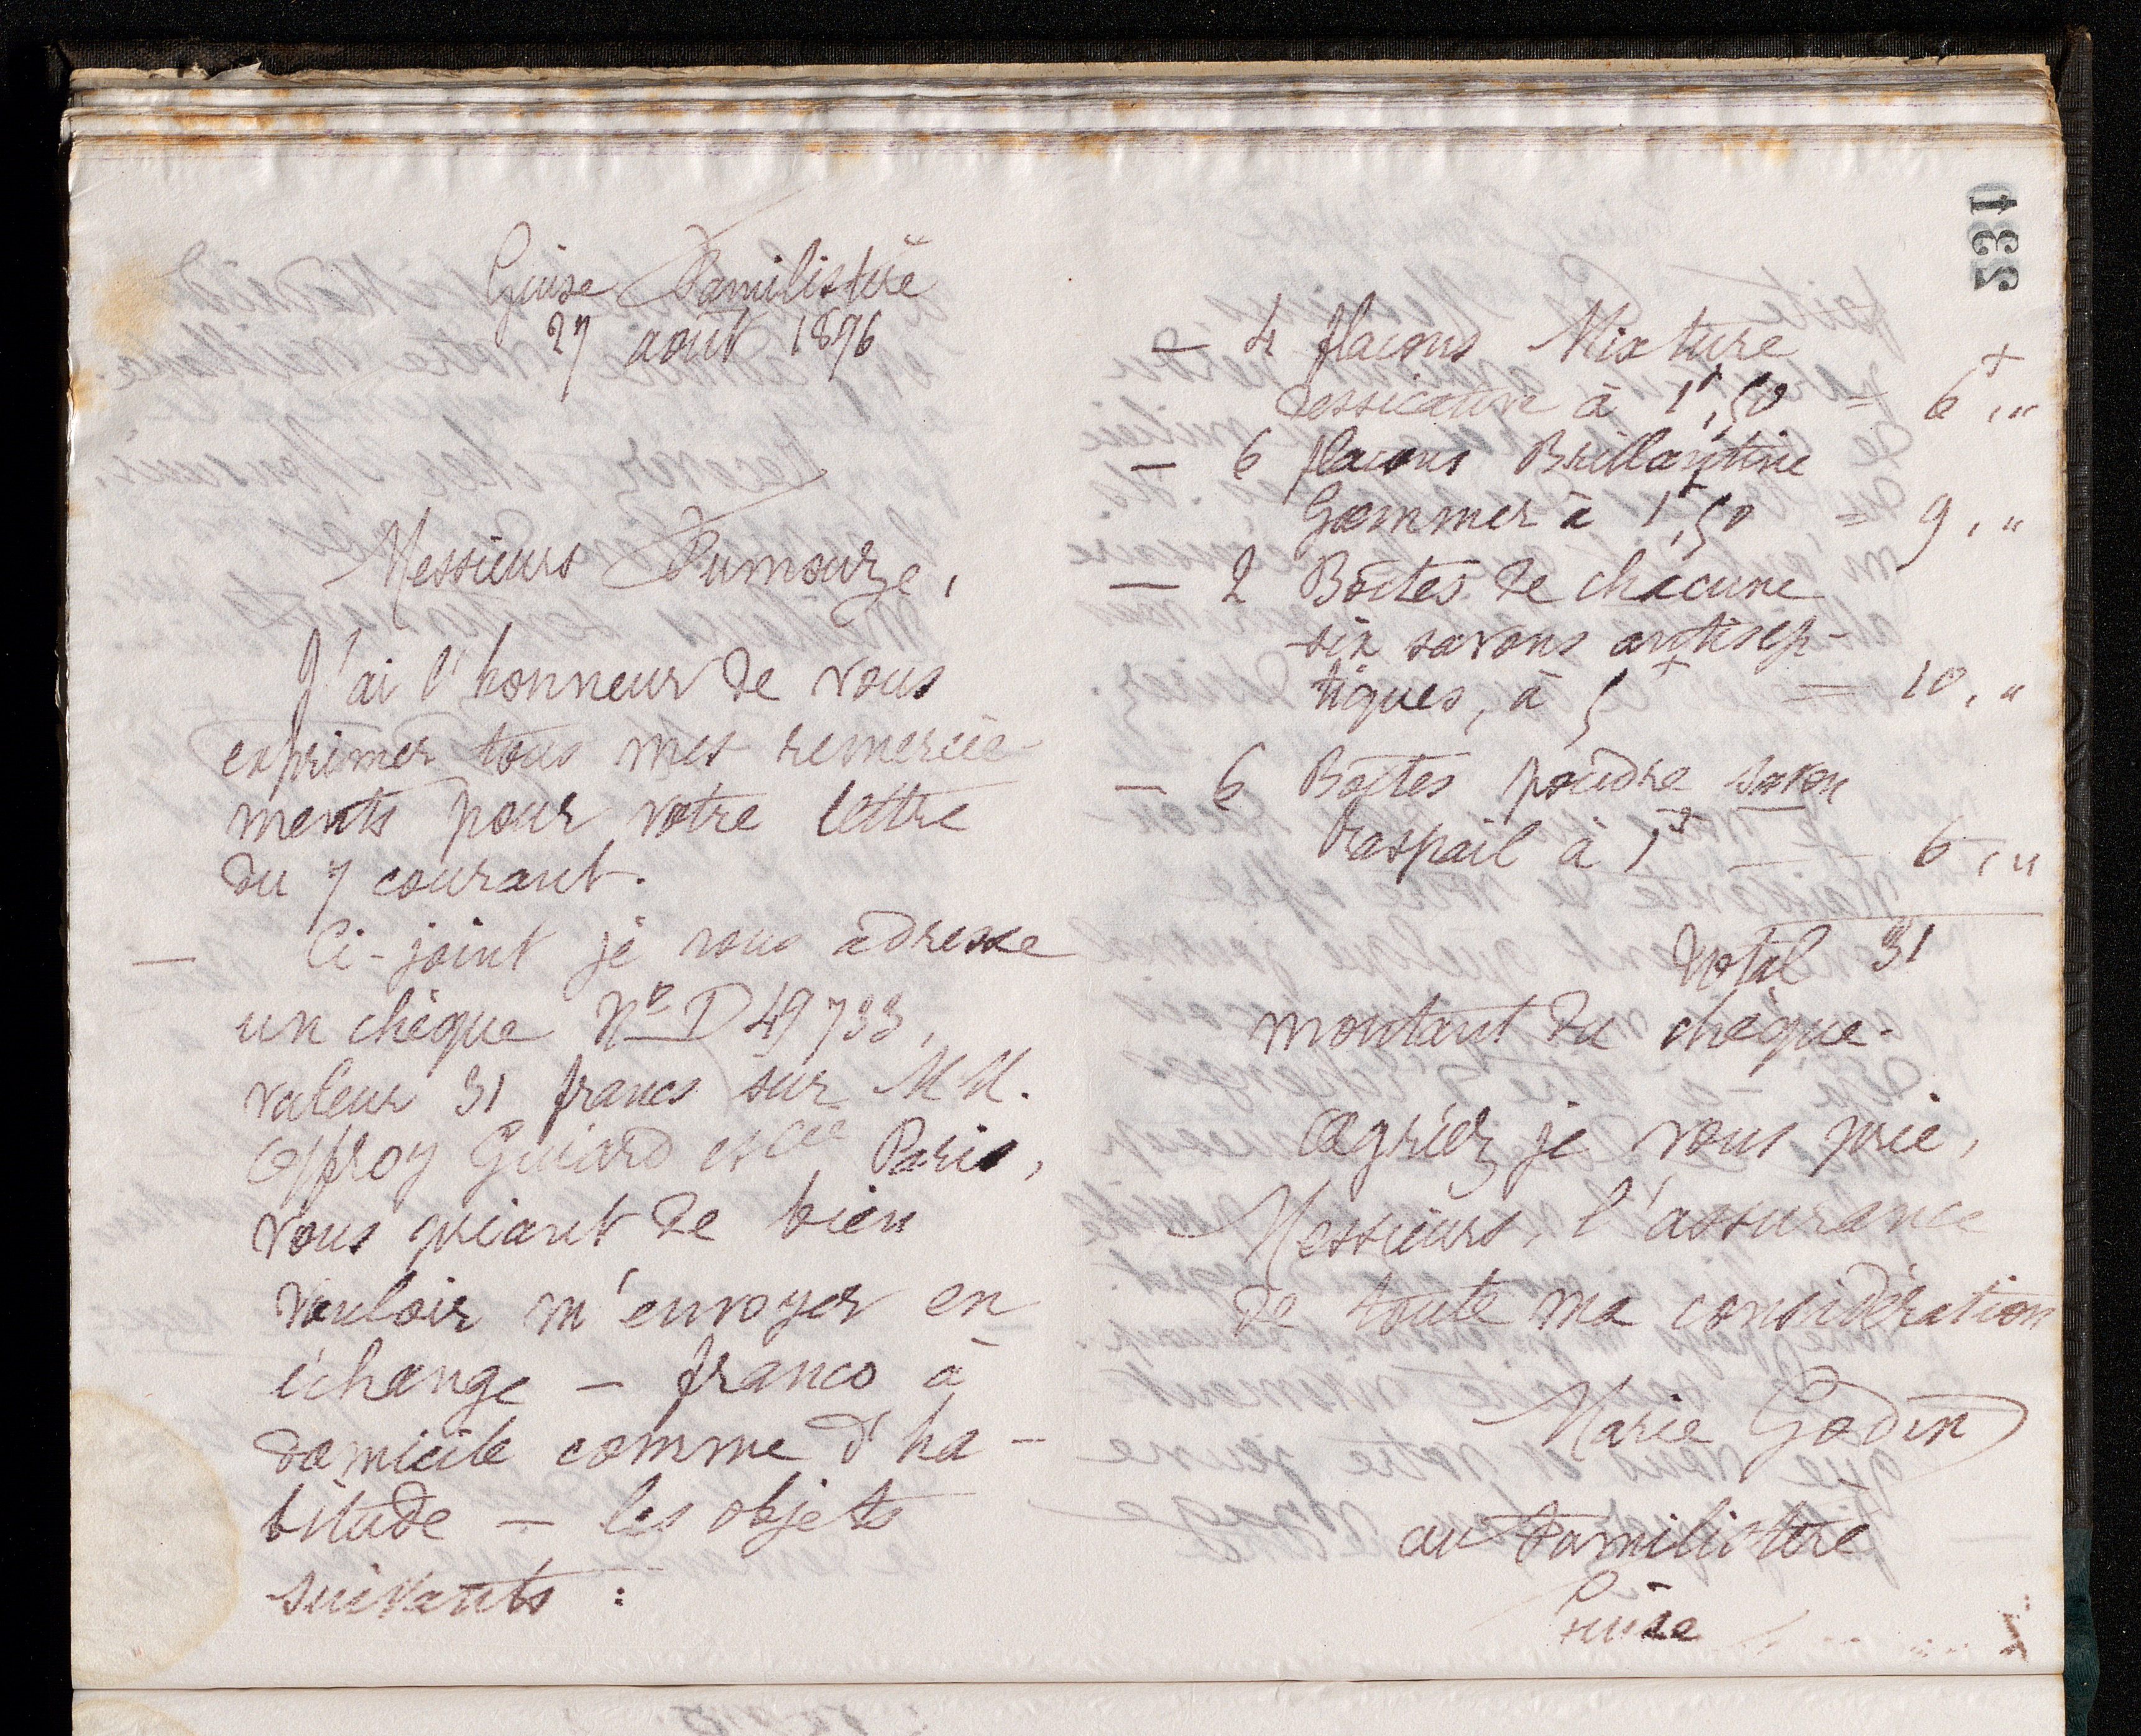 Guise Familistère
27 août 1896
Messieurs Fumouze,
J'ai l'honneur de vous
exprimer tous mes remercie-
ments pour votre lettre
du 7 courant.
— Ci-joint je vous adresse
un chèque No D 49733,
valeur 31 francs sur MM.
Offroy Guiard et Cie Paris,
vous priant de bien
vouloir m'envoyer en
échange — franco à
domicile comme d'ha-
bitude — les objets
suivants :
531
— 4 flacons Mixture
dessicative à 1f,50 = 6f,"
— 6 flacons Brillantine
Gommer à 1f,50 = 9,"
— 2 Boîtes de chacune
six savons antisep-
tiques, à 5f = 10,"
— 6 Boîtes poudre savon
Raspail à 1f — 6,"
Total 31
montant du chèque.
Agréez je vous prie,
Messieurs, l'assurance
de toute ma considération
Marie Godin
au Familistère
Guise